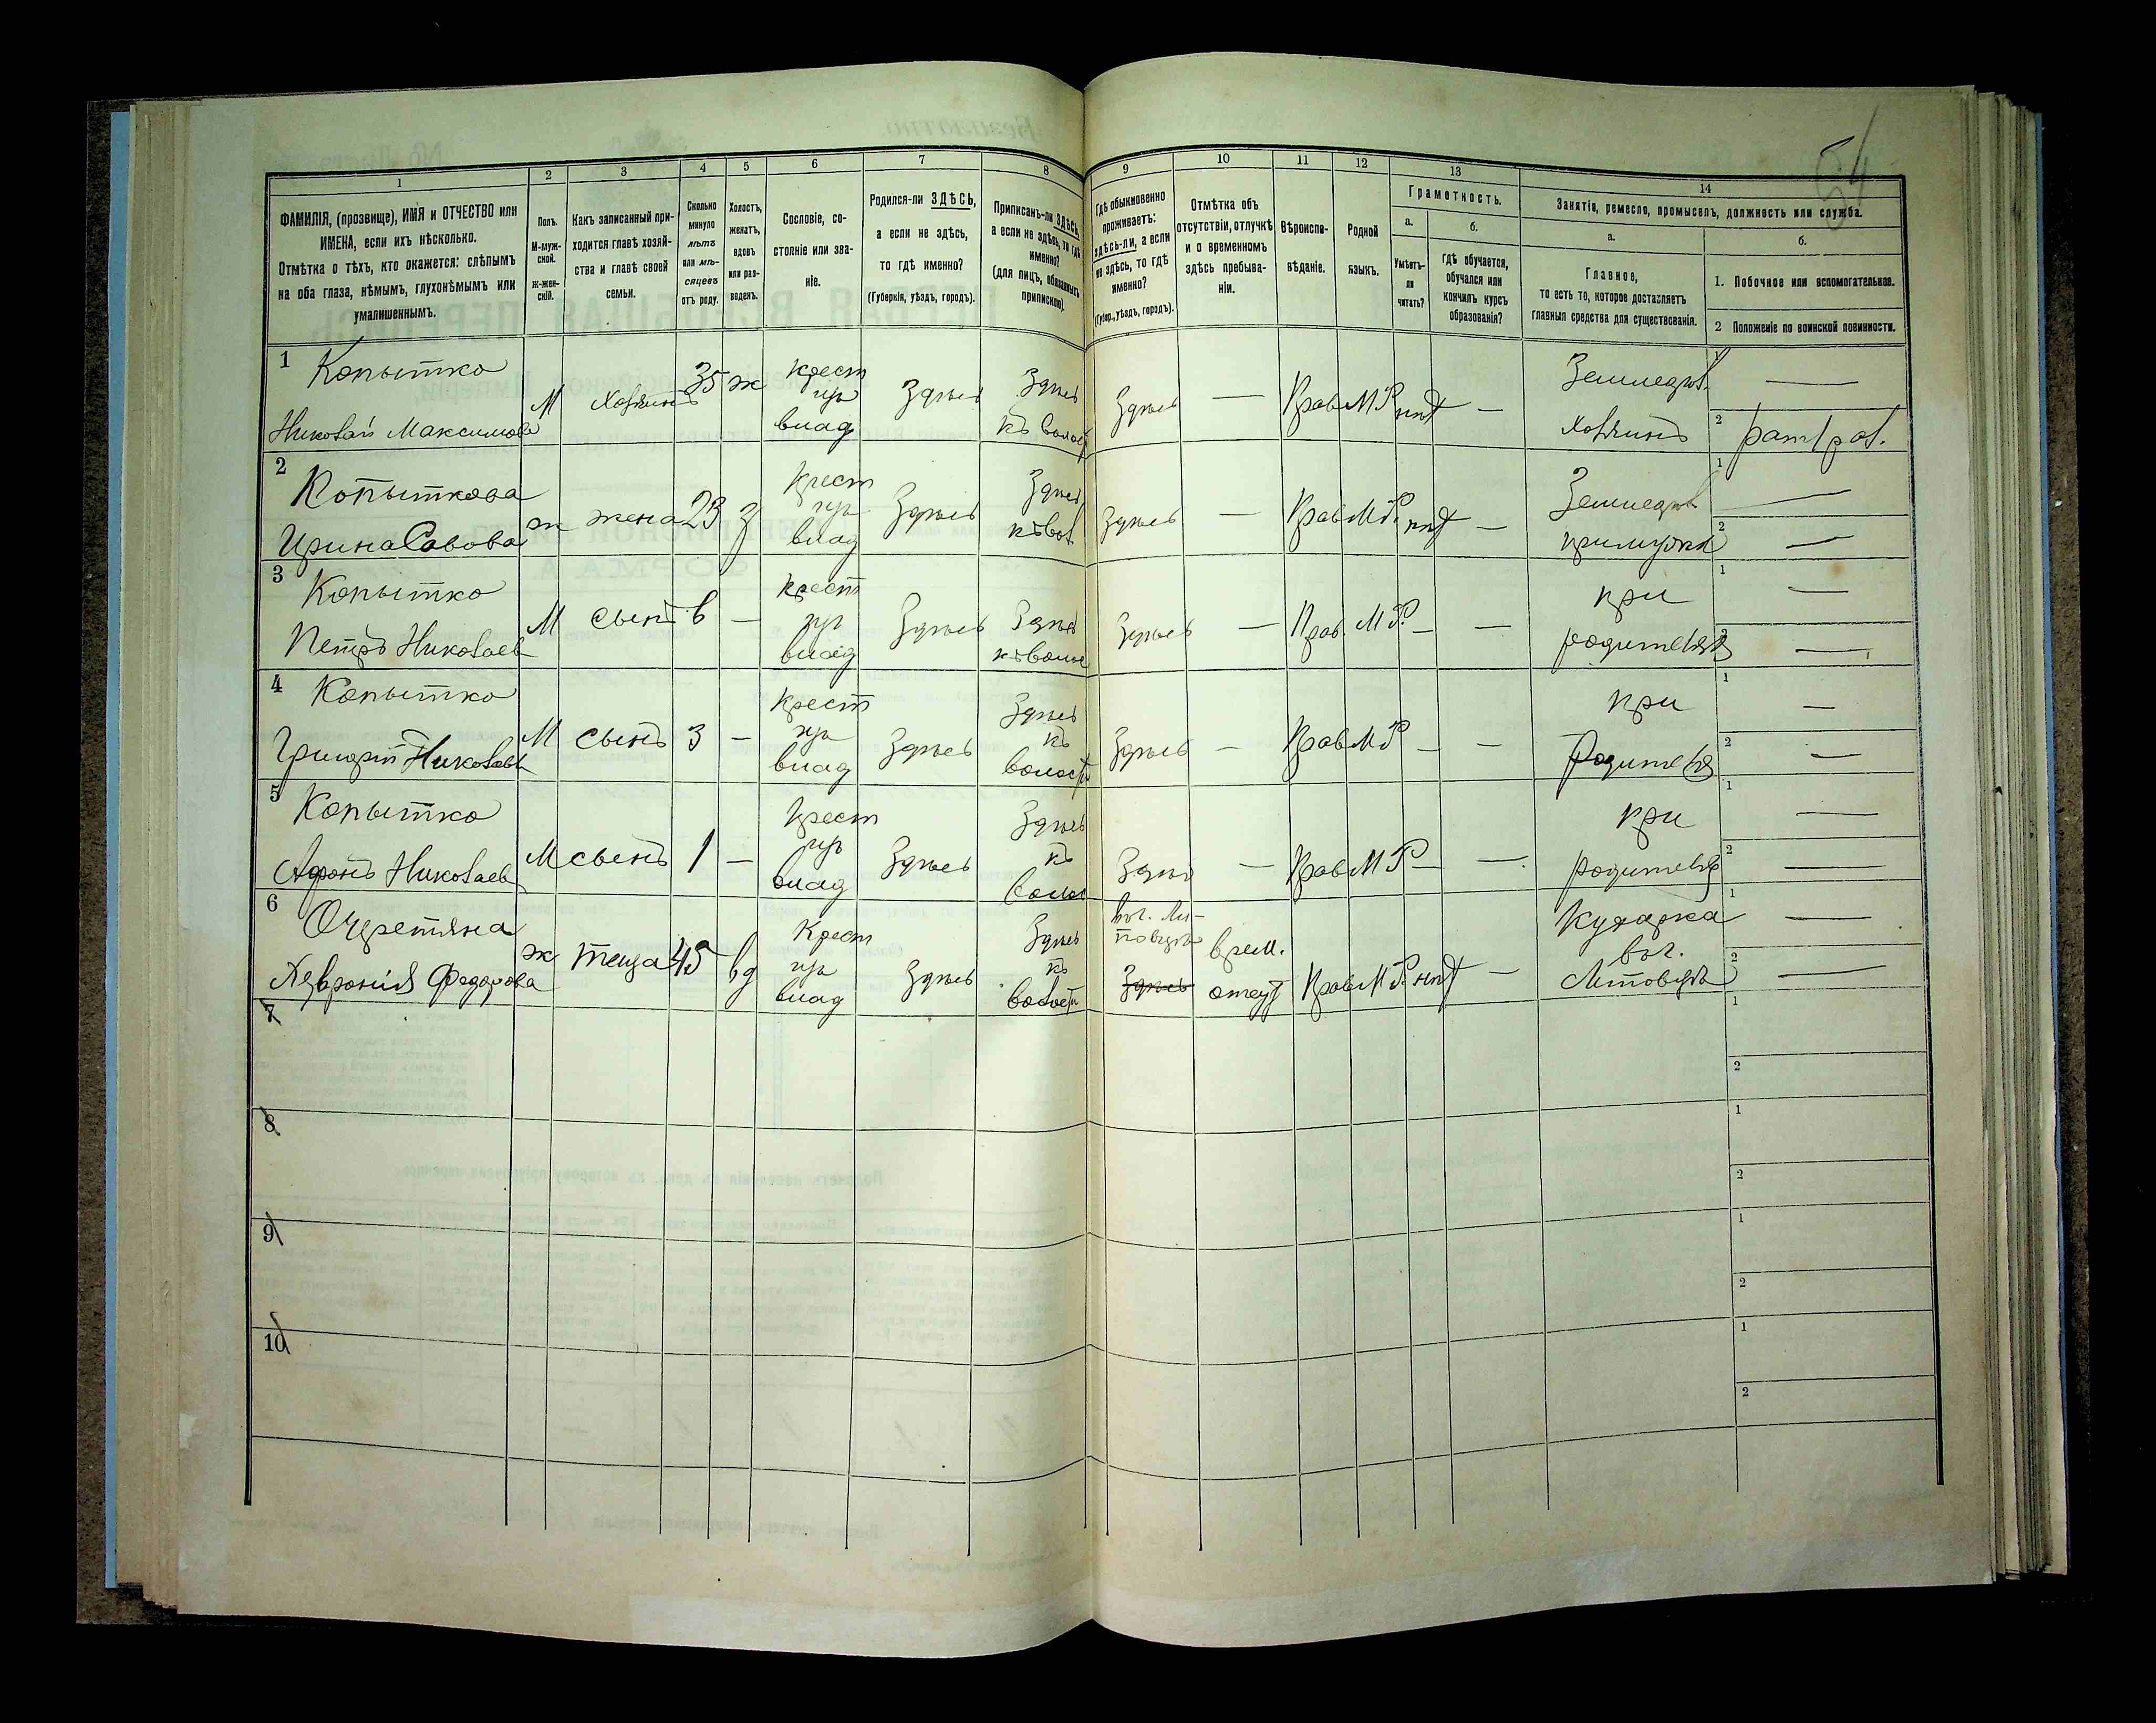 54
1 2 3 4 5 6 7 8 9 10 11 12 13 14
ФАМИЛІЯ, (прозвище), ИМЯ и ОТЧЕСТВО или
ИМЕНА, если ихъ нѣсколько.
Отмѣтка о тѣхъ, кто окажется: слѣпымъ
на оба глаза, нѣмымъ, глухонѣмымъ или
умалишеннымъ.
Полъ.
М-муж-
ской.
Ж-жен-
скій.
Какъ записанный при-
ходится главѣ хозяй-
ства и главѣ своей
семьи.
Сколько
минуло
лѣтъ
или мѣ-
сяцевъ
отъ роду.
Холостъ,
женатъ,
вдовъ
или раз-
веденъ.
Сословіе, со-
стояніе или зва-
ніе.
Родился-ли ЗДѢСЬ,
а если не здѣсь,
то гдѣ именно?
(Губернія, уѣздъ, городъ).
Приписанъ-ли ЗДѢСЬ,
а если не здѣсь, то гдѣ
именно?
(для лицъ, обязанныхъ
припискою).
Гдѣ обыкновенно
проживаетъ:
здѣсь-ли, а если
не здѣсь, то гдѣ
именно?
(Губер., уѣздъ, городъ).
Отмѣтка объ
отсутствіи, отлучкѣ
и о временномъ
здѣсь пребыва-
ніи.
Вѣроиспо-
вѣданіе.
Родной
языкъ.
Грамотность.
а.
Умѣетъ-
ли
читать?
б.
гдѣ обучается,
обучался или
кончилъ курсъ
образованія?
Занятіе, ремесло, промыселъ, должность или служба.
а.
Главное,
то есть то, которое доставляетъ
главныя средства для существованія.
б.
1. Побочное или вспомогательное.
2 Положеніе по воинской повинности.
1 Копытко
Николай Максимовъ
М Хозяинъ 35 ж
крест
изъ
влад
Здѣсь
Здѣсь
къ волост
Здѣсь — Прав М Р нѣт —
Земледѣл.
хозяинъ
1 —
2
2 Копыткова
Ирина Савова
ж жена 23 з
крест
изъ
влад
Здѣсь
Здѣсь
къ вол
Здѣсь — Прав М Р. нѣт —
Земледѣл
при мужѣ
1 —
2 —
3 Копытко
Петръ Николаев
М сынъ 6 —
крест
изъ
влад
Здѣсь
Здѣсь
къ волос
Здѣсь — Прав. М Р. — —
при
родителях
1 —
2 —
4 Копытко
Григорій Николаев
М сынъ 3 —
крест
изъ
влад
Здѣсь
Здѣсь
къ
волости
Здѣсь — Прав М Р — —
при
родителях
1 —
2 —
5 Копытко
Николаев
М сынъ 1 —
крест
изъ
влад
Здѣсь
Здѣсь
къ
волос
Здѣсь — Прав М Р — —
при
родителях
1 —
2 —
6 Очеретяна
Февронія Федорова
ж теща 45 вд
Крест
изъ
влад
Здѣсь
Здѣсь
къ
волост
Здѣсь
врем.
отсут
Прав М Р. нѣт —
Кухарка
Литовцѣ
1 —
2 —
7
1
2
8
1
2
9
1
2
10
1
2